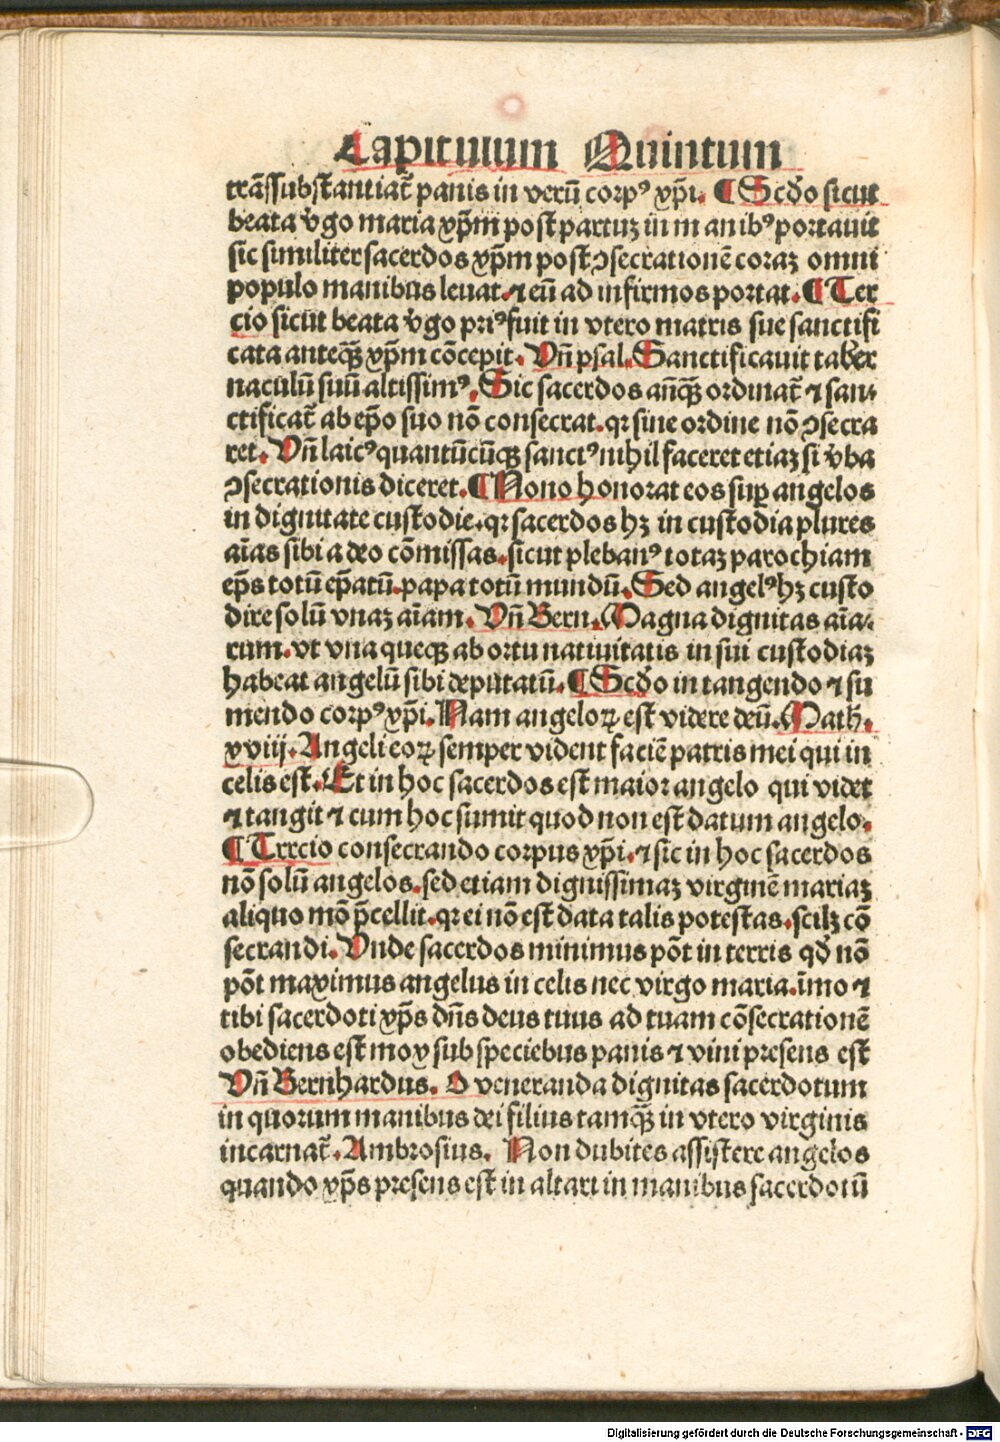 Capitulum Quintum
trãssubstantiat᷒ panis in verũ corpꝰ xp̃i. ¶ Scḋo sicut
beata v̾go maria xp̃m post partuꝫ in manibꝰ portauit
sic similiter sacerdos xp̃m post ↄsecrationẽ coraꝫ omni
populo manibus leuat. ⁊ eũ ad infirmos portat. ¶ Ter
cio sicut beata v̾go priꝰ fuit in vtero matris sue sanctifi
cata anteq̃ꝫ xp̃m cõcepit. Vñ psal. Sanctificauit taber
naculũ suũ altissimꝰ. Sic sacerdos añq̃ꝫ ordinat᷒ ⁊ san⸗
ctificat᷒ ab ep̃o suo nõ consecrat. qꝛ sine ordine nõ ↄsecra
ret. Vñ laicꝰ quantũcũqꝫ sanctꝰ nihil faceret etiaꝫ si v̾ba
ↄsecrationis diceret. ¶ Nono honorat eos suꝑ angelos
in dignitate custodie. qꝛ sacerdos hꝫ in custodia plures
aĩas sibi a deo cõmissas. sicut plebanꝰ totaꝫ parochiam
ep̃s totũ ep̃atũ. papa totũ mundũ. Sed angelꝰ hꝫ custo
dire solũ vnaꝫ aĩam. Vñ Bern. Magna dignitas aĩa⸗
rum. vt vna queqꝫ ab ortu natiuitatis in sui custodiaꝫ
habeat angelũ sibi deputatũ. ¶ Scḋo in tangendo ⁊ su
mendo corpꝰ xp̃i. Nam angeloꝝ est videre deũ. Math.
xviij. Angeli eoꝝ semper vident faciẽ patris mei qui in
celis est. Et in hoc sacerdos est maior angelo qui videt
⁊ tangit ⁊ cum hoc sumit quod non est datum angelo.
¶ Trrcio consecrando corpus xp̃i. ⁊ sic in hoc sacerdos
nõ solũ angelos. sed etiam dignissimaꝫ virginẽ mariaꝫ
aliquo mõ p̃cellit. qꝛ ei nõ est data talis potestas. scilꝫ cõ
secrandi. Vnde sacerdos minimus põt in terris qḋ nõ
põt maximus angelus in celis nec virgo maria. ĩmo ⁊
tibi sacerdoti xp̃s dñs deus tuus ad tuam cõsecrationẽ
obediens est mox sub speciebus panis ⁊ vini presens est
Vñ Bernhardus. O veneranda dignitas sacerdotum
in quorum manibus dei filius tamq̃ꝫ in vtero virginis
incarnat᷒. Ambrosius. Non dubites assistere angelos
quando xp̃s presens est in altari in manibus sacerdotũ
Digitalisierung gefördert durch die Deutsche Forschungsgemeinschaft - DFG